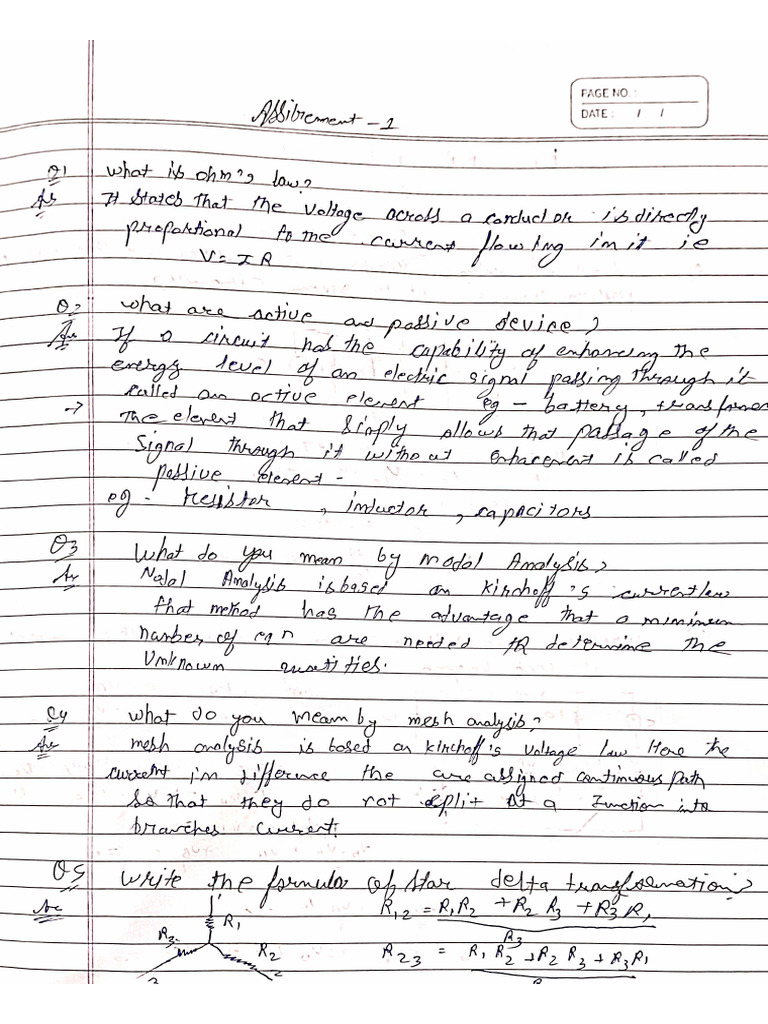 PAGE NO. :
DATE : / /
Assibement - 1
Q1 What is ohm's law?
As It States That the Voltage across a conductor is directly
proportional to the current flowing in it ie
V = I R
Q2 What are active and passive device?
An If a circuit has the capability of enhancing the
energy level of an electric signal passing through it
called an active element eg - battery, transformer
→ The element that Simply allows that passage of the
Signal through it without enhacement is called
passive element -
eg - resistor , inductor , capacitors
Q3 What do you mean by nodal Analysis?
An Nodal Analysis is based on Kirchoff's current law
that method has the advantage that a minimum
number of eqn are needed to determine the
Unknown quatities.
Q4 What do you mean by mesh analysis?
An mesh analysis is based on Kirchoff's Voltage law Here the
current in difference the are assigned continuous path
So that they do not split At a Junction into
branches current.
Q5 Write the formula of star delta transformation?
An 1 R12 = R1R2 + R2 R3 + R3 R1
R3
R1
R3 R2
R23 = R1 R2 + R2 R3 + R3R1
3 2